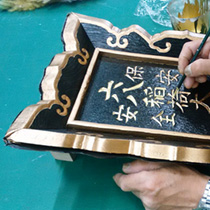 保安
六八稲荷大
安全